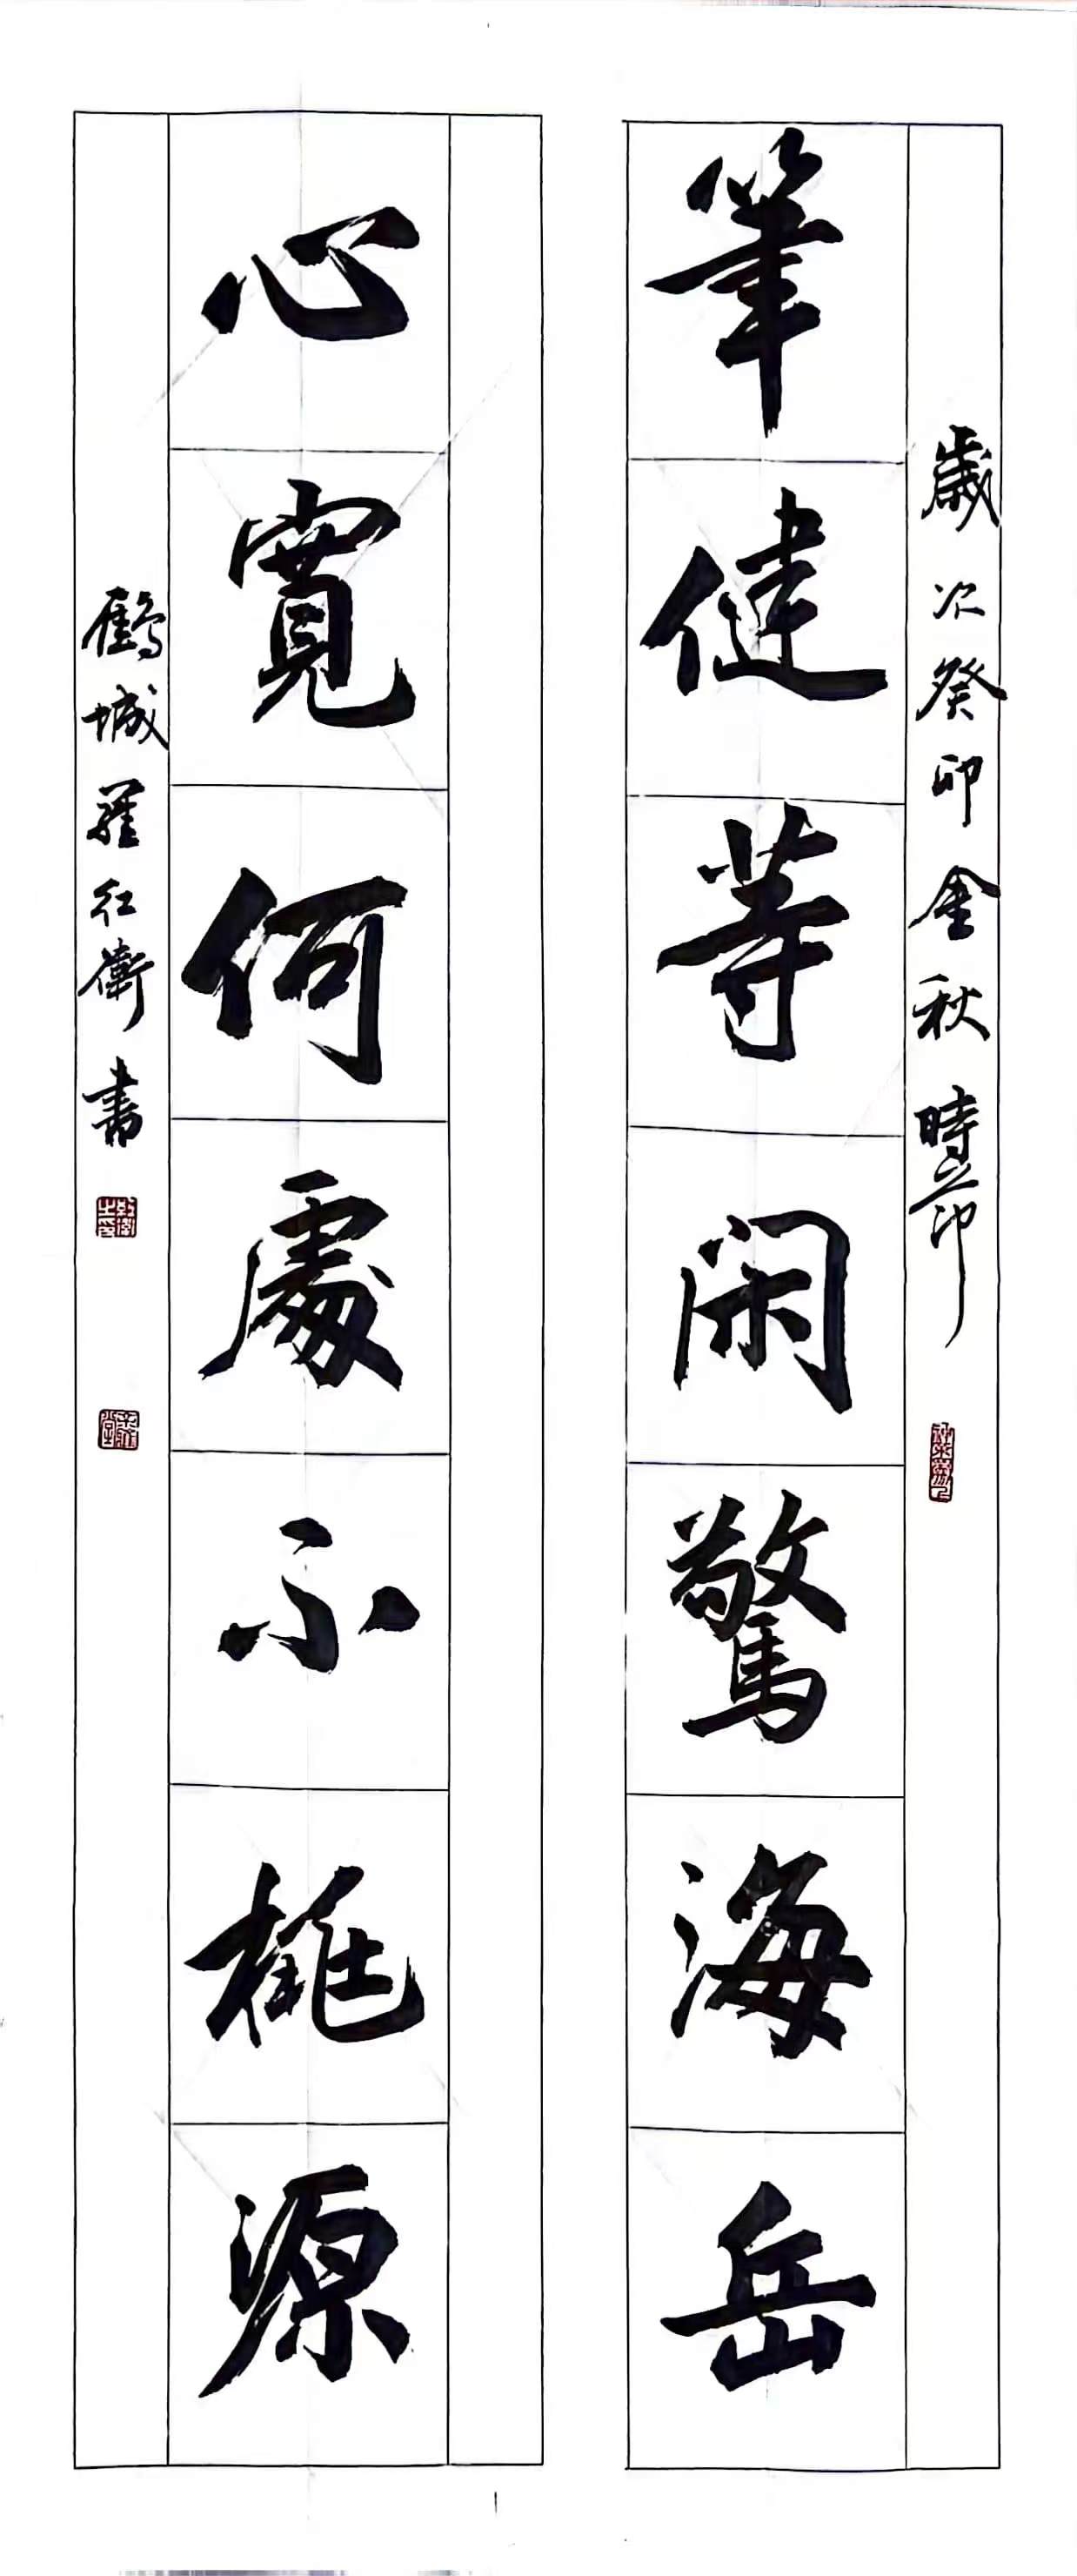 歲次癸卯金秋時節
筆健等閑驚海岳
心寬何處不桃源
鶴城羅紅衛書